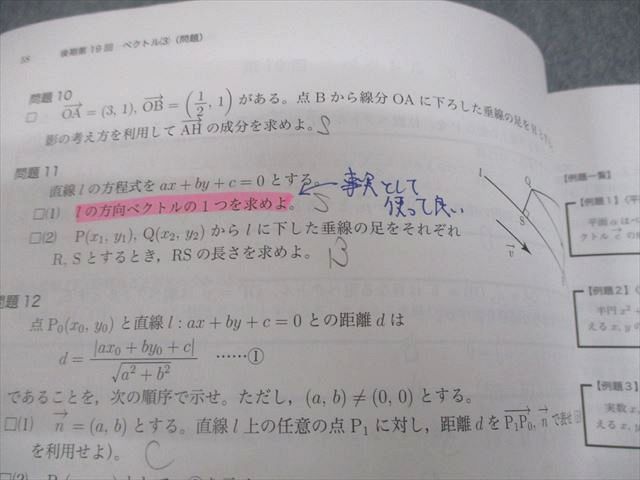 58 後期第19回 ベクトル③ (問題)
問題10
□ OA = (3, 1), OB = (1/2, 1) がある。点Bから線分OAに下ろした垂線の足をHと
影の考え方を利用してAHの成分を求めよ。 S
問題11
直線 l の方程式を ax + by + c = 0 とする。
□(1) l の方向ベクトルの1つを求めよ。 S
← 事実として
使って良い
□(2) P(x₁, y₁), Q(x₂, y₂) から l に下した垂線の足をそれぞれ
R, Sとするとき, RSの長さを求めよ。 B
l Q
S
v
問題12
点 P₀(x₀, y₀) と直線 l : ax + by + c = 0 との距離 d は
d = |ax₀ + by₀ + c| / √a² + b² ……①
であることを, 次の順序で示せ。ただし, (a, b) ≠ (0, 0) とする。
□(1) n = (a, b) とする。直線 l 上の任意の点 P₁ に対し, 距離 d を P₁P₀, n で表せ
を利用せよ)。 C
□(2)
【例題一覧】
【例題1】
平面 α
クトル
【例題2】
半円 x²
える x, y の
【例題3】
実数 x,
える x, y